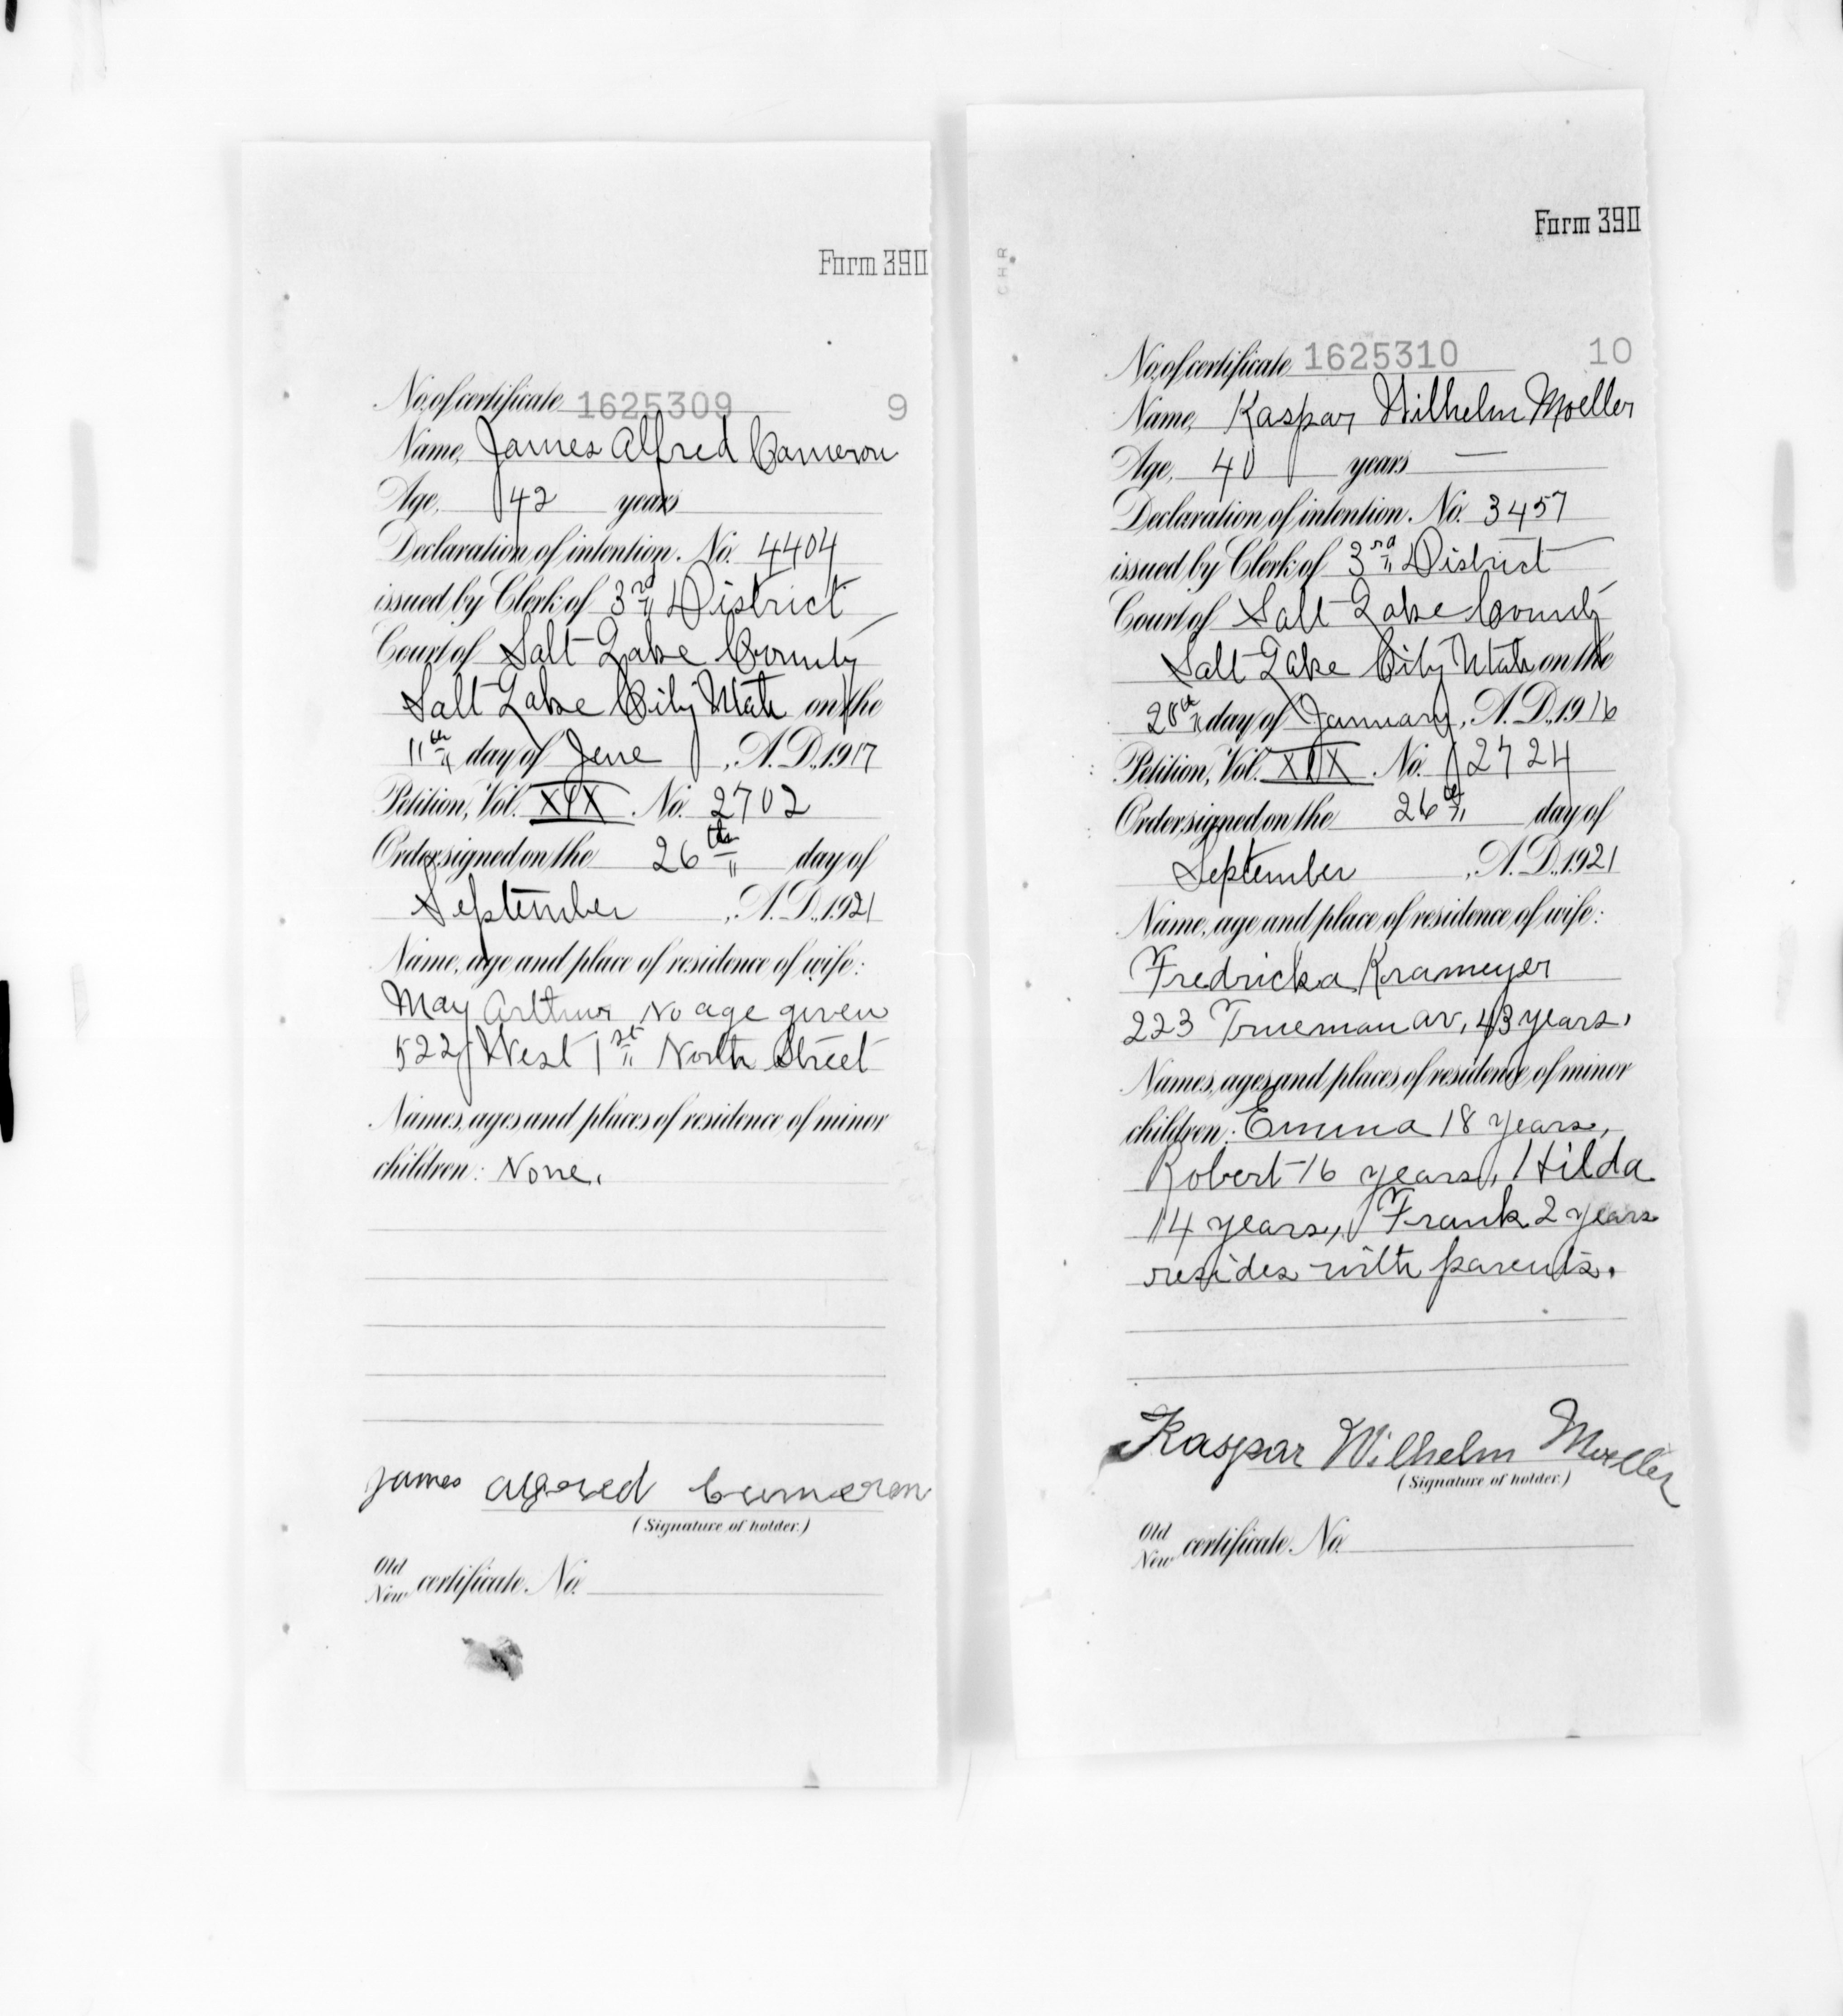 Form 390
No. of certificate 1625309 9
Name, James Alfred Cameron
Age, 42 years
Declaration of intention. No. 4404
issued by Clerk of 3rd District
Court of Salt Lake County
Salt Lake City Utah on the
11th day of June, A. D. 1917
Petition, Vol. XIX. No. 2702
Order signed on the 26th day of
September, A. D. 1921
Name, age and place of residence of wife:
May Arthur No age given
522 West 1st North Street
Names, ages and places of residence of minor
children: None.
James Alfred Cameron
(Signature of holder.)
Old
New certificate No.
Form 390
CHR
No. of certificate 1625310 10
Name, Kaspar Wilhelm Moeller
Age, 40 years —
Declaration of intention. No. 3457
issued by Clerk of 3rd District
Court of Salt Lake County
Salt Lake City Utah on the
28th day of January, A. D. 1916
Petition, Vol. XIX. No. 2724
Order signed on the 26th day of
September, A. D. 1921
Name, age and place of residence of wife:
Fredricka Krameyer
223 Trueman av, 43 years.
Names, ages and places of residence of minor
children: Emma 18 years,
Robert 16 years, Hilda
14 years, Frank 2 years
resides with parents.
Kaspar Wilhelm Moeller
(Signature of holder.)
Old
New certificate No.